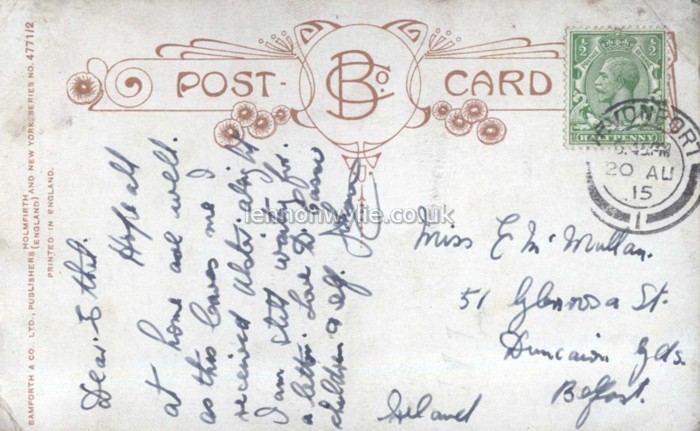 BAMFORTH & CO. LTD., PUBLISHERS
HOLMFIRTH
(ENGLAND) AND NEW YORK, SERIES NO. 4771/2
PRINTED IN ENGLAND.
POST-CARD
B Co
½ ½
HALFPENNY
6.45 PM
20 AU
15
1
Dear
Hope all
at home are well.
as this leaves me I
received
I am still waiting for
a letter. Love
children & self.
lennonwylie.co.uk
Miss E McMullan.
51 Glenrosa St.
Duncairn Gds.
Belfast.
Ireland